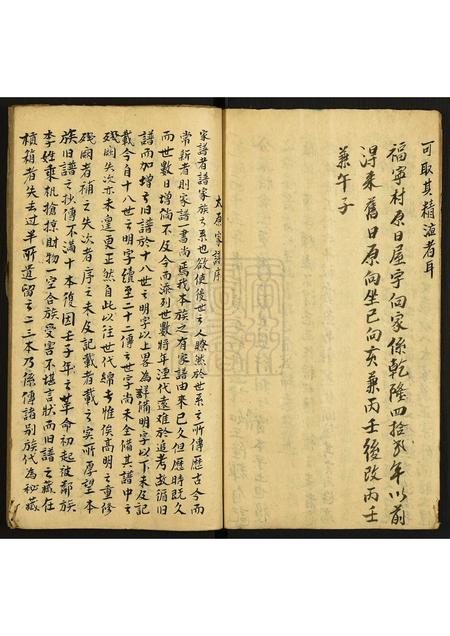 可取其精溢者耳
福寧村原日屋宇向家係乾隆四拾弍年以前
淂来舊日原向坐巳向亥兼丙壬後改丙壬
兼午子
太原家譜序
家譜者譜家族之系也欲使後世之人瞭然於世系之所傳歷古今而
常新者則家譜一書尚焉我本族之有家譜由来已久但歷時既久
而世數日增倘不及今而添列世數將年湮代遠难於追考故循旧
譜而加增之旧譜於十八世之明字以上畧為詳備明字以下未及記
載今自十八世之明字續至二十二傳之世字尚未全備其譜中之
殘闕失次亦未遑更正然自此以往世代綿長惟俟高明之重修
殘闕者補之失次者序之未及記載者載之实所厚望本
族旧譜之抄傳不滿十本復因壬子年之革命初起被鄰族
李姓乘机搶掠財物一空合族受害不堪言狀而旧譜之藏在
槓箱者失去过半所遺留之二三本乃係傳諸别族代為秘藏